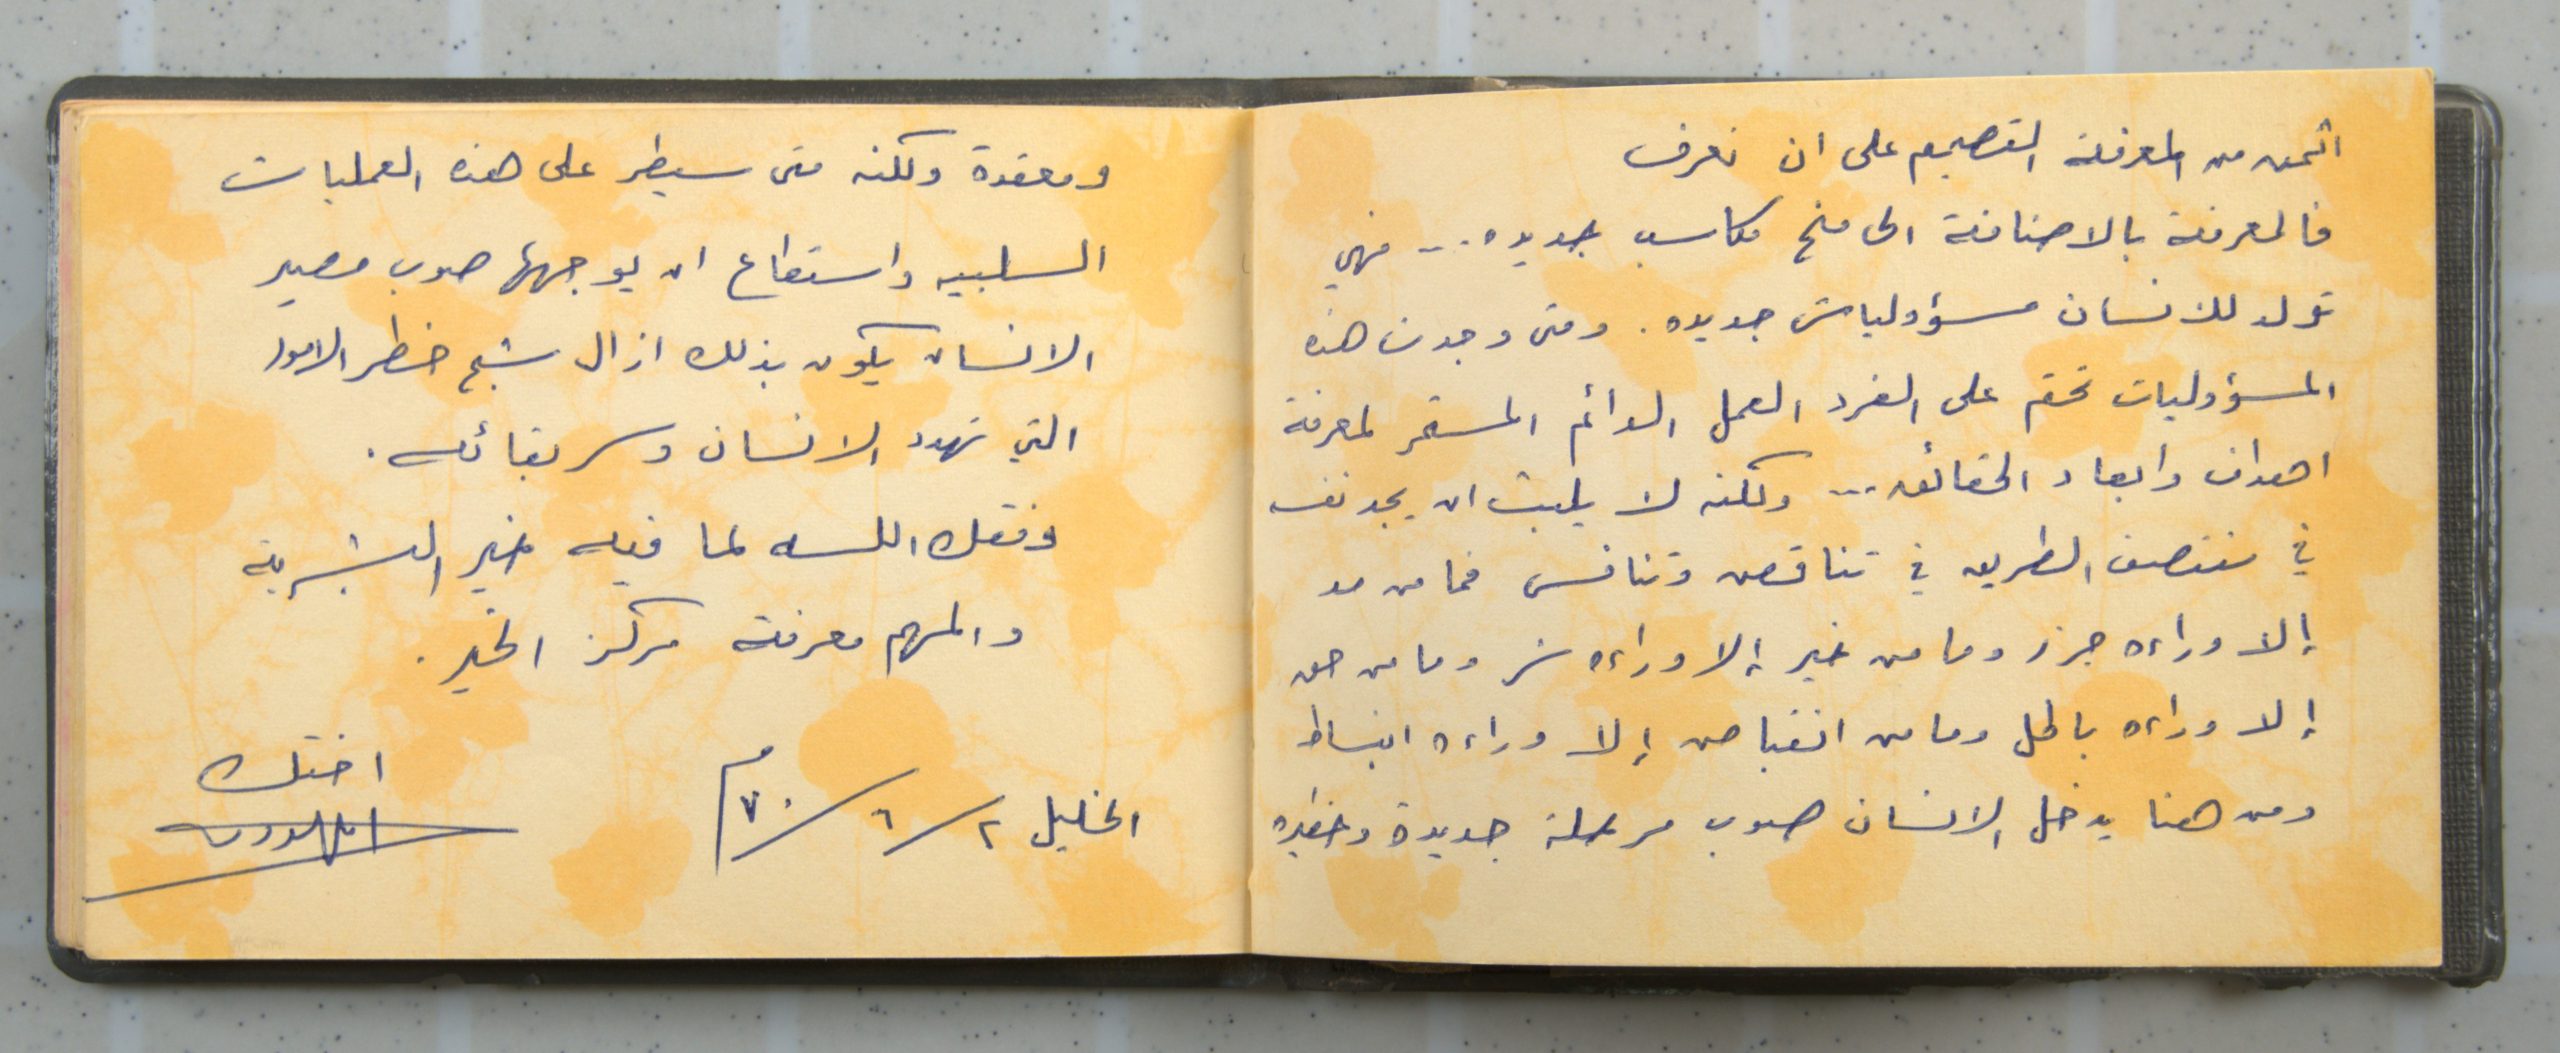 اثمن من المعرفة التصميم على ان نعرف
فالمعرفة بالاضافة الى منح مكاسب جديده... فهي
تولد للانسان مسؤوليات جديده. ومتى وجدت هذه
المسؤوليات تحتم على الفرد العمل الدائم المستمر لمعرفة
اهداف وابعاد الحقائق... ولكنه لا يلبث ان يجد نفسه
في منتصف الطريق في تناقض وتنافس فما من مد
إلا وراءه جزر وما من خير إلا وراءه شر وما من حق
إلا وراءه باطل وما من انقباض إلا وراءه انبساط
ومن هنا يدخل الانسان صوب مرحلة جديدة وخطيره
ومعقدة ولكنه متى سيطر على هذه العمليات
السلبيه واستطاع ان يوجهها صوب مصير
الانسان يكون بذلك ازال شبح خطر الامور
التي تهدد الانسان وسر بقائه.
وفقك الله لما فيه خير البشرية
والمهم معرفة مركز الخير.
الخليل ٢/٦/٧٠م
اختك